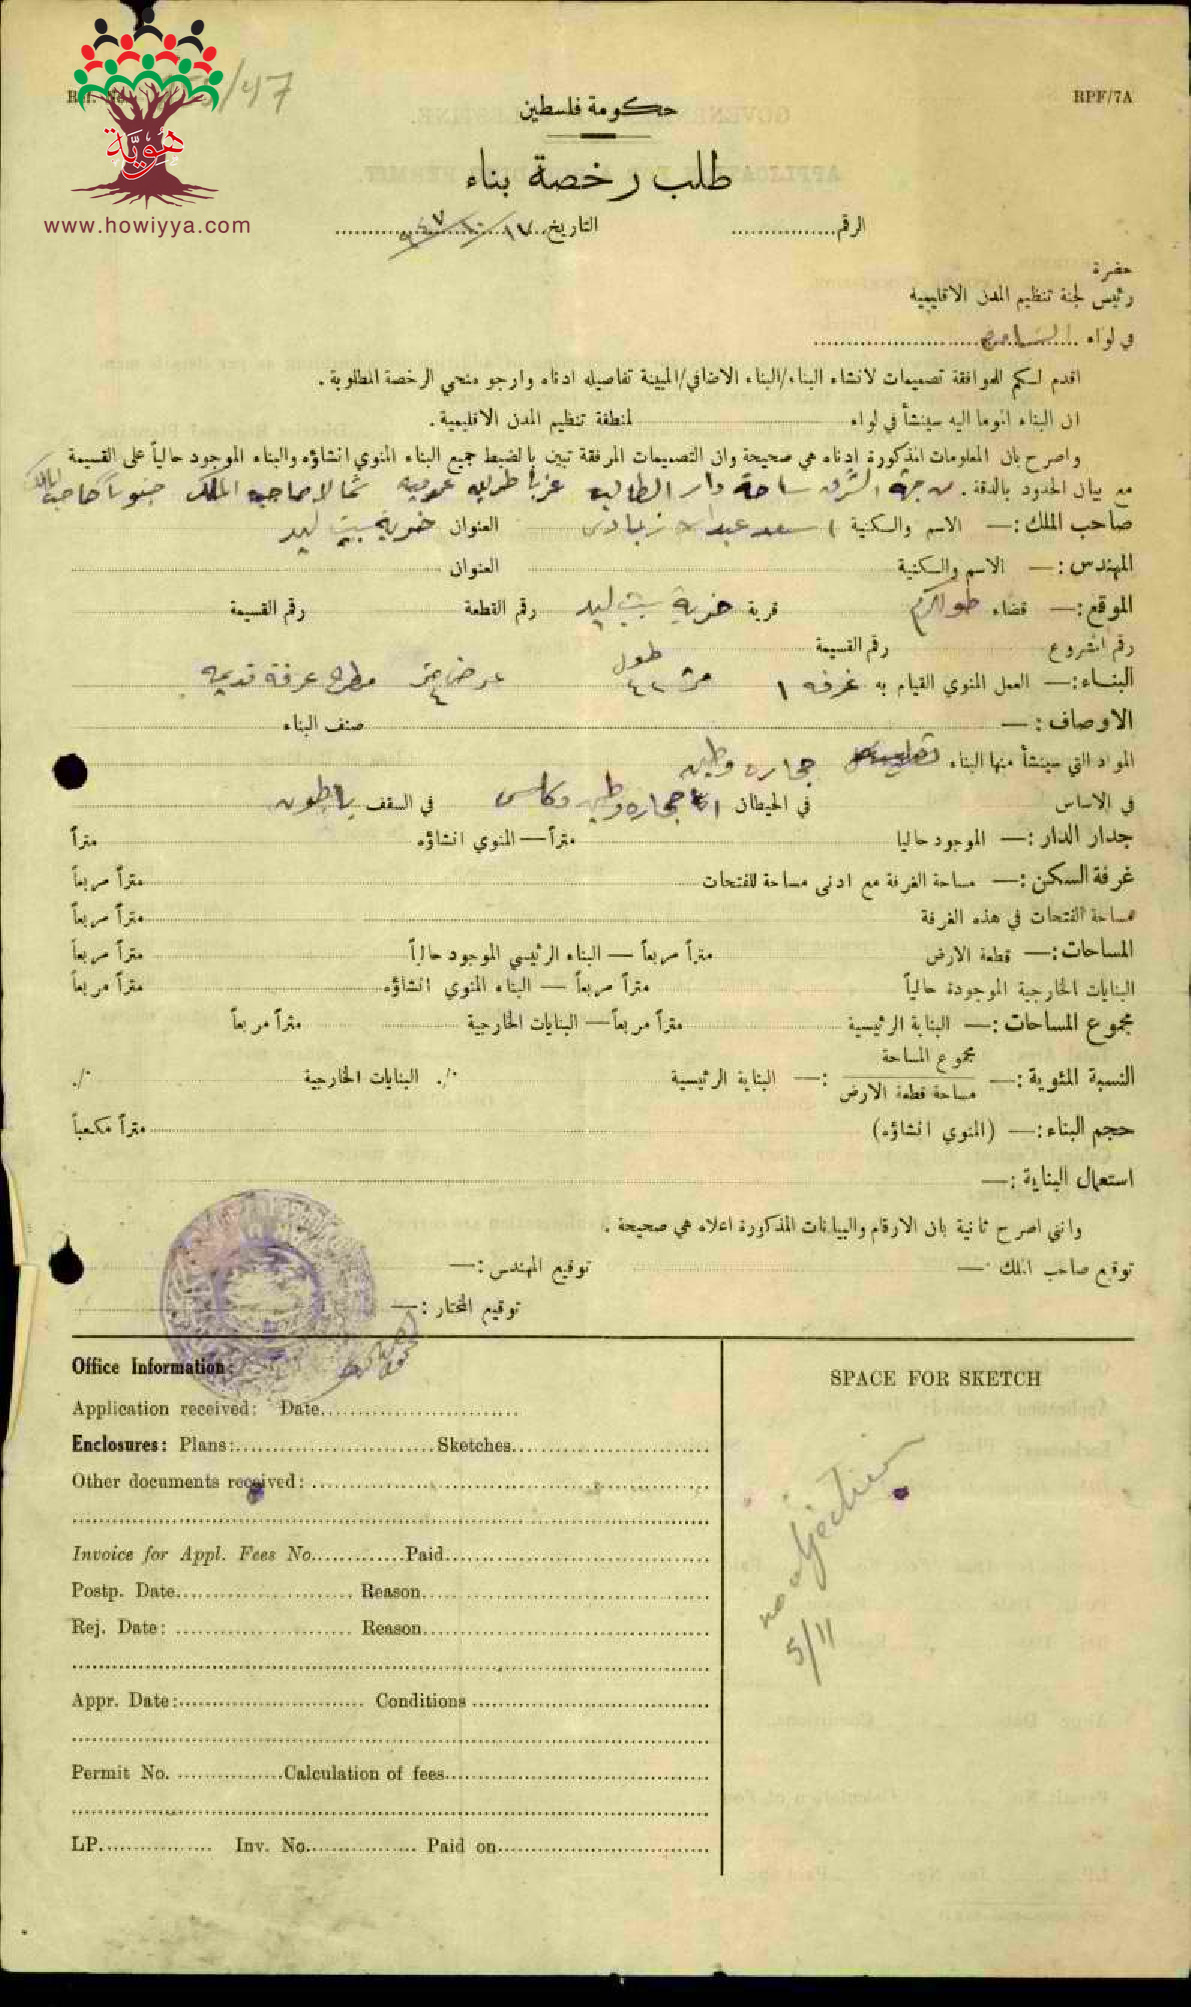 هوية
www.howiyya.com
/47
RPF/7A
حكومة فلسطين
طلب رخصة بناء
الرقم................ التاريخ ١٧/١٠/٩٤٧
حضرة
رئيس لجنة تنظيم المدن الاقليمية
في لواء السامرة
اقدم لكم للموافقة تصميمات لانشاء البناء/البناء الاضافي/المبينة تفاصيله ادناه وارجو منحي الرخصة المطلوبة .
ان البناء الموما اليه سينشأ في لواء لمنطقة تنظيم المدن الاقليمية .
واصرح بان المعلومات المذكورة ادناه هي صحيحة وان التصميمات المرفقة تبين بالضبط جميع البناء المنوي انشاؤه والبناء الموجود حالياً على القسيمة
مع بيان الحدود بالدقة . من جهة الشرق ساحة دار الطالب غربا طريق عموميه شمالا صاحب الملك جنوبا صاحب الملك
صاحب الملك :— الاسم والكنية سعد عبدالله زيادي العنوان خربة بيت ليد
المهندس :— الاسم والكنية العنوان
الموقع :— قضاء طولكرم قرية خربة بيت ليد رقم القطعة رقم القسيمة
رقم المشروع رقم القسيمة
البناء :— العمل المنوي القيام به غرفه ١ طول متر ٤ عرض متر ٤ مطرح غرفة قديمه
الاوصاف :— صنف البناء
المواد التي سينشأ منها البناء حجاره وطين
في الاساس في الحيطان حجاره وطين وكلس في السقف باطون
جدار الدار :— الموجود حاليا متراً — المنوي انشاؤه متراً
غرفة السكن :— مساحة الغرفة مع ادنى مساحة للفتحات متراً مربعاً
مساحة الفتحات في هذه الغرفة متراً مربعاً
المساحات :— قطعة الارض متراً مربعاً — البناء الرئيسي الموجود حالياً متراً مربعاً
البنايات الخارجية الموجودة حالياً متراً مربعاً — البناء المنوي انشاؤه متراً مربعاً
مجموع المساحات :— البناية الرئيسية متراً مربعاً — البنايات الخارجية متراً مربعاً
النسبة المئوية :— مجموع المساحة / مساحة قطعة الارض :— البناية الرئيسية ./. البنايات الخارجية ./.
حجم البناء :— (المنوي انشاؤه) متراً مكعباً
استعمال البناية :—
وانني اصرح ثانية بان الارقام والبيانات المذكورة اعلاه هي صحيحة .
توقيع صاحب الملك :— توقيع المهندس :—
توقيع المختار :—
Office Information:
Application received: Date
Enclosures: Plans: Sketches
Other documents received:
Invoice for Appl. Fees No. Paid
Postp. Date Reason
Rej. Date: Reason
Appr. Date: Conditions
Permit No. Calculation of fees
LP. Inv. No. Paid on
SPACE FOR SKETCH
no objection
5/11